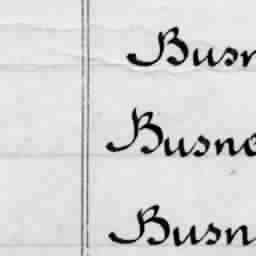 Busn
Busne
Busn